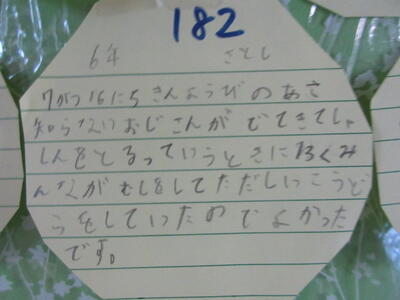 182
6年 さとし
7がつ16にちきんようびのあさ
知らないおじさんがでてきてしゃ
しんをとるっていうときにぼくみ
んながむしをしてただしいこうど
うをしていたのでよかった
です。